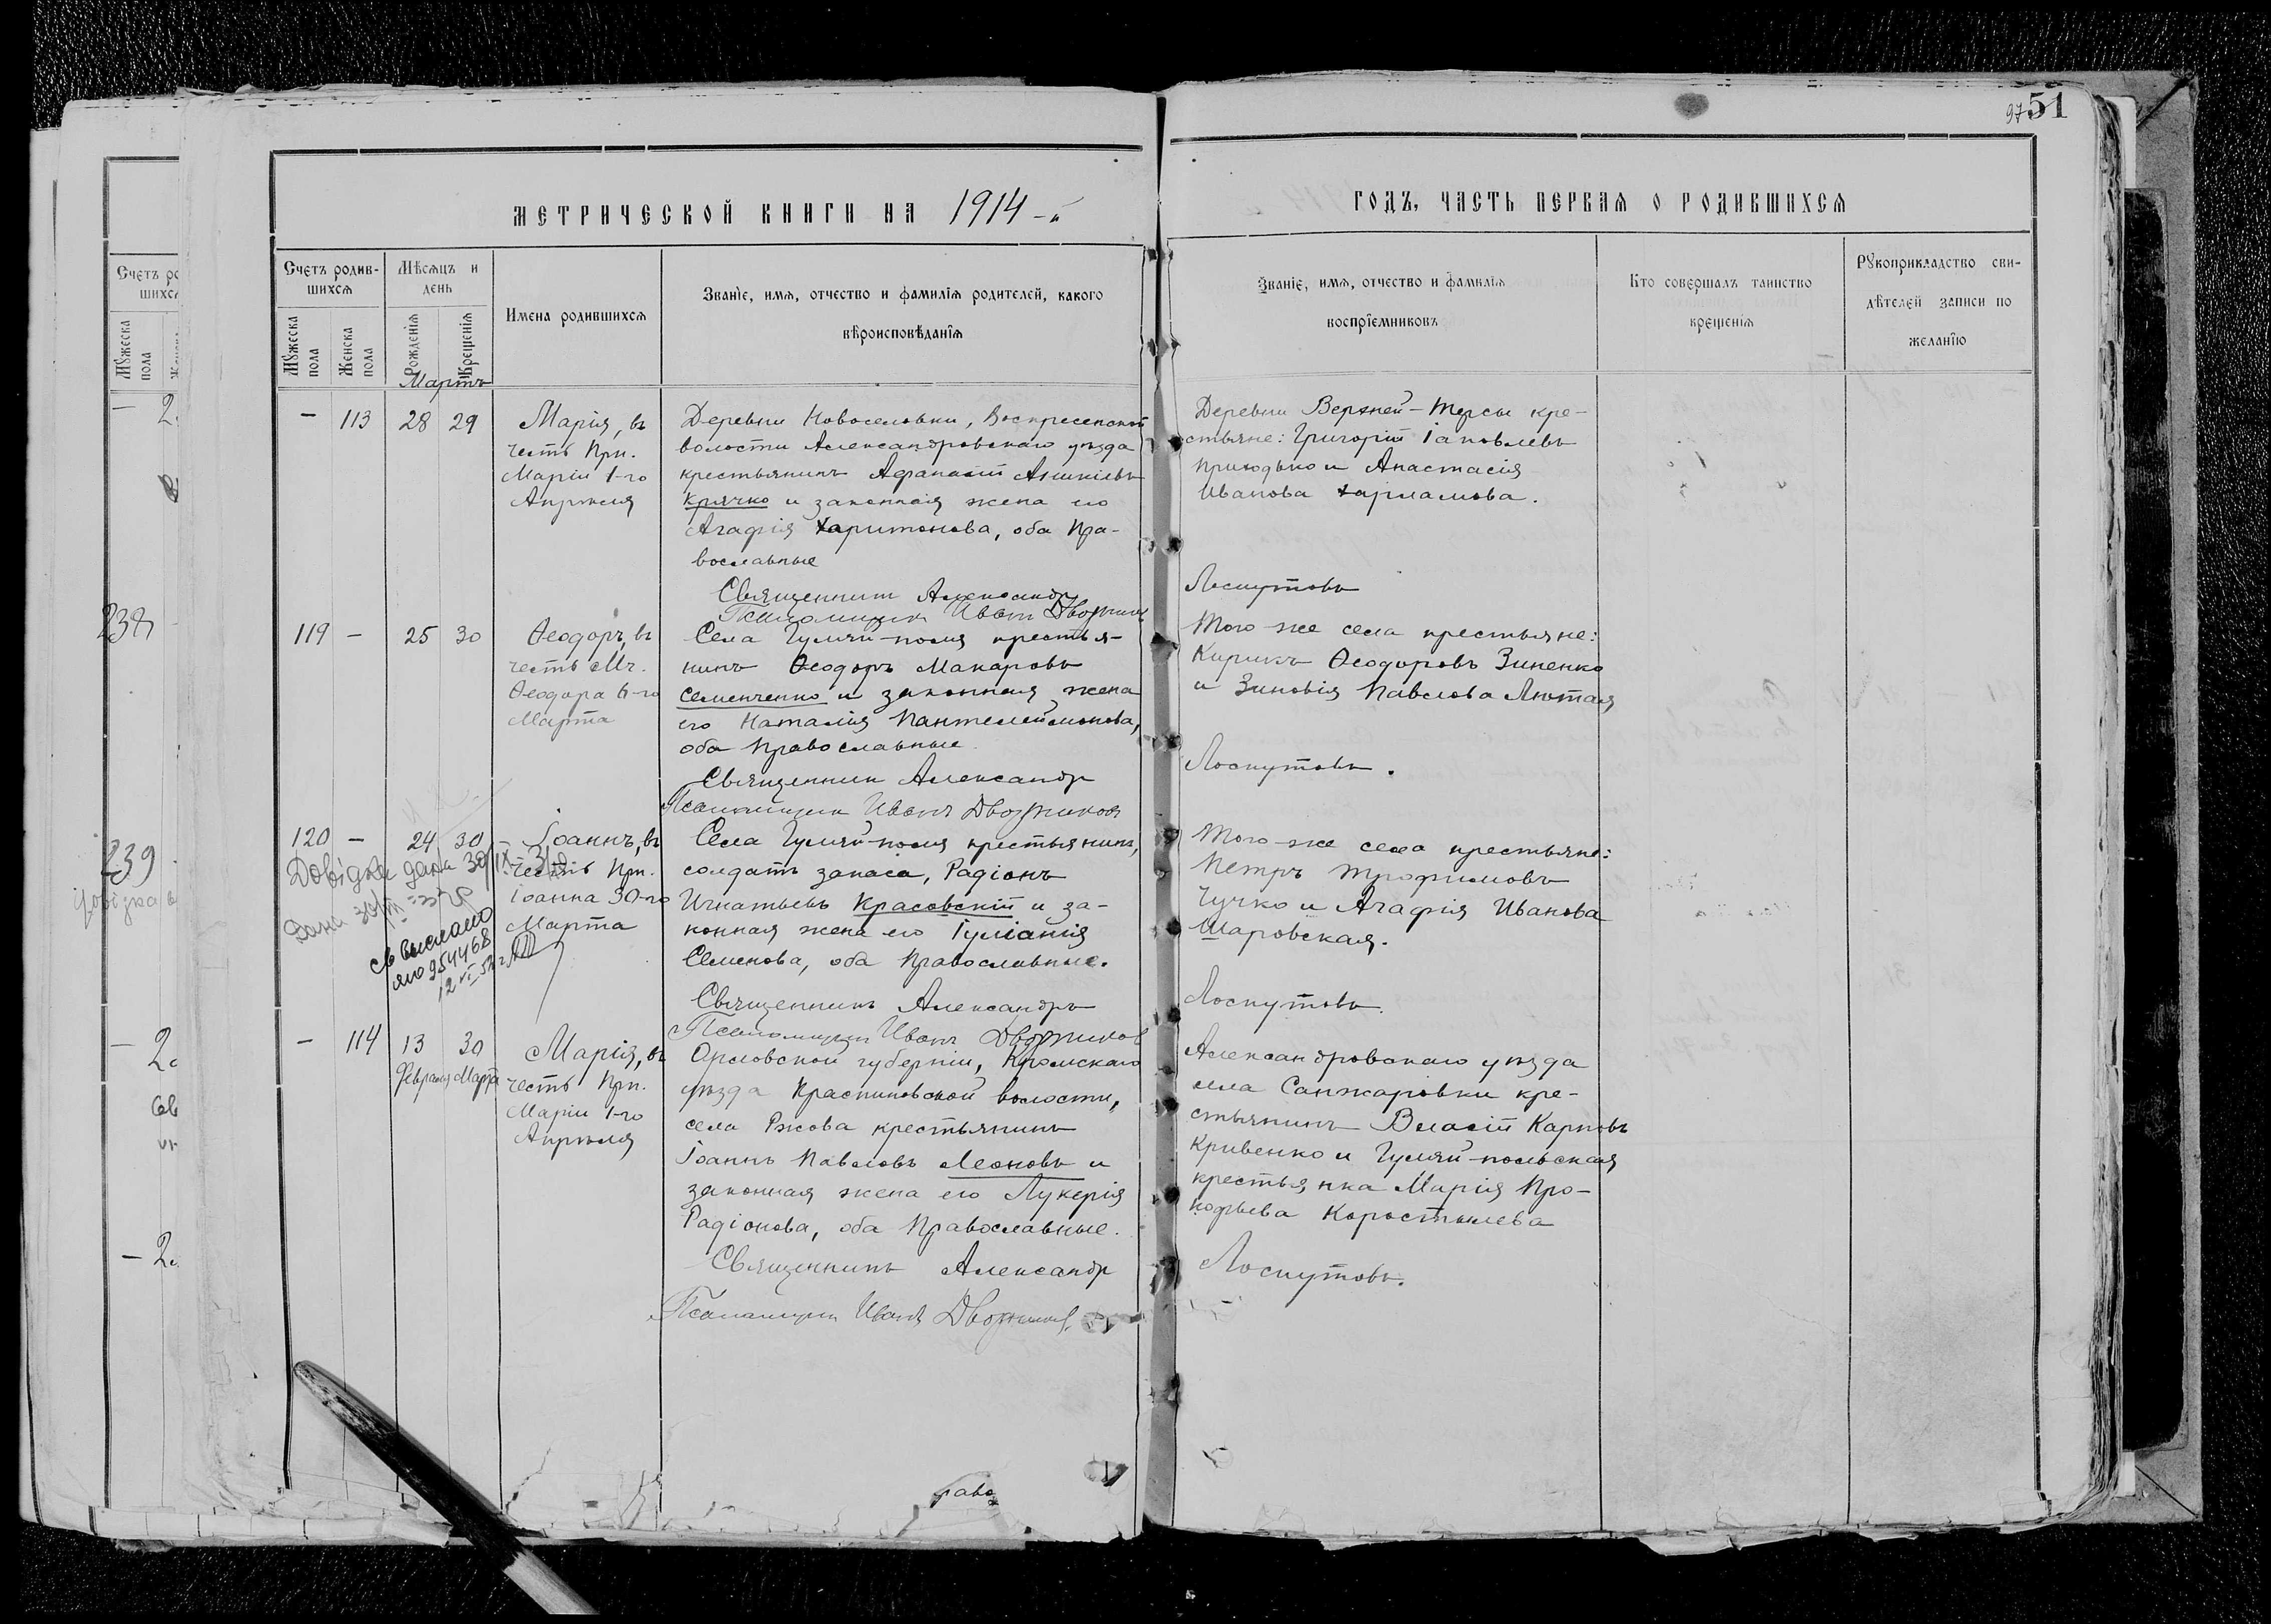 97 51
МЕТРИЧЕСКОЙ КНИГИ НА 1914-й
ГОДЪ, ЧАСТЬ ПЕРВАЯ О РОДИВШИХСЯ
Счетъ родив-
шихся
Мѣсяцъ и
день
Мужеска
пола
Женска
пола
Рожденія
Крещенія
Имена родившихся
Званіе, имя, отчество и фамилія родителей, какого
вѣроисповѣданія
Званіе, имя, отчество и фамилія
воспріемниковъ
Кто совершалъ таинство
крещенія
Рукоприкладство сви-
дѣтелей записи по
желанію
Мартъ
— 113 28 29
Марія, въ
честь Прп.
Маріи 1-го
Апрѣля
Деревни Новоселовки, Воскресенской
волости Александровскаго уѣзда
крестьянинъ Афанасій
Крячко и законная жена его
Агафія Харитонова, оба Пра-
вославные
Деревни Верхней-Терсы кре-
стьяне: Григорій Іаковлевъ
Приходько и Анастасія
Иванова Харламова.
Священникъ Александр
Лоскутовъ
Псаломщикъ Иванъ Дворников
119 — 25 30
Ѳеодоръ, въ
честь Мч.
Ѳеодора 6-го
Марта
Села Гуляй-поля крестья-
нинъ Ѳеодоръ Макаровъ
Семенченко и законная жена
его Наталія Пантелеймонова,
оба Православные.
Того-же села крестьяне:
Кирикъ Ѳеодоровъ Зиненко
и Зиновія Павлова Лютая
Священник Александр
Лоскутовъ.
Псаломщик Иванъ Дворников
120 — 24 30
Іоаннъ, въ
честь Прп.
Іоанна 30-го
Марта
Довідка дана 30/IX-31
Дана 30/
Св выслано
яю 954468
12 VI
Села Гуляй-поля крестьянинъ,
солдатъ запаса, Радіонъ
Игнатьевъ Красовскій и за-
конная жена его Іуліанія
Семенова, оба Православные.
Того-же села крестьяне:
Петръ Трофимовъ
Чучко и Агафія Иванова
Шаровская.
Священникъ Александръ
Лоскутовъ.
Псаломщик Иванъ Дворников
— 114 13 30
Февраля Марта
Марія, въ
честь Прп.
Маріи 1-го
Апрѣля
Орловской губерніи, Кромскаго
уѣзда Краснинской волости,
села Ржова крестьянинъ
Іоаннъ Павловъ Леоновъ и
законная жена его Лукерія
Радіонова, оба Православные.
Александровскаго уѣзда
села Санжаровки кре-
стьянинъ Власій Карповъ
Кривенко и Гуляй-польская
крестьянка Марія Про-
кофьева Коростылева
Священникъ Александр
Лоскутовъ.
Псаломщик Иванъ Дворников
238
239